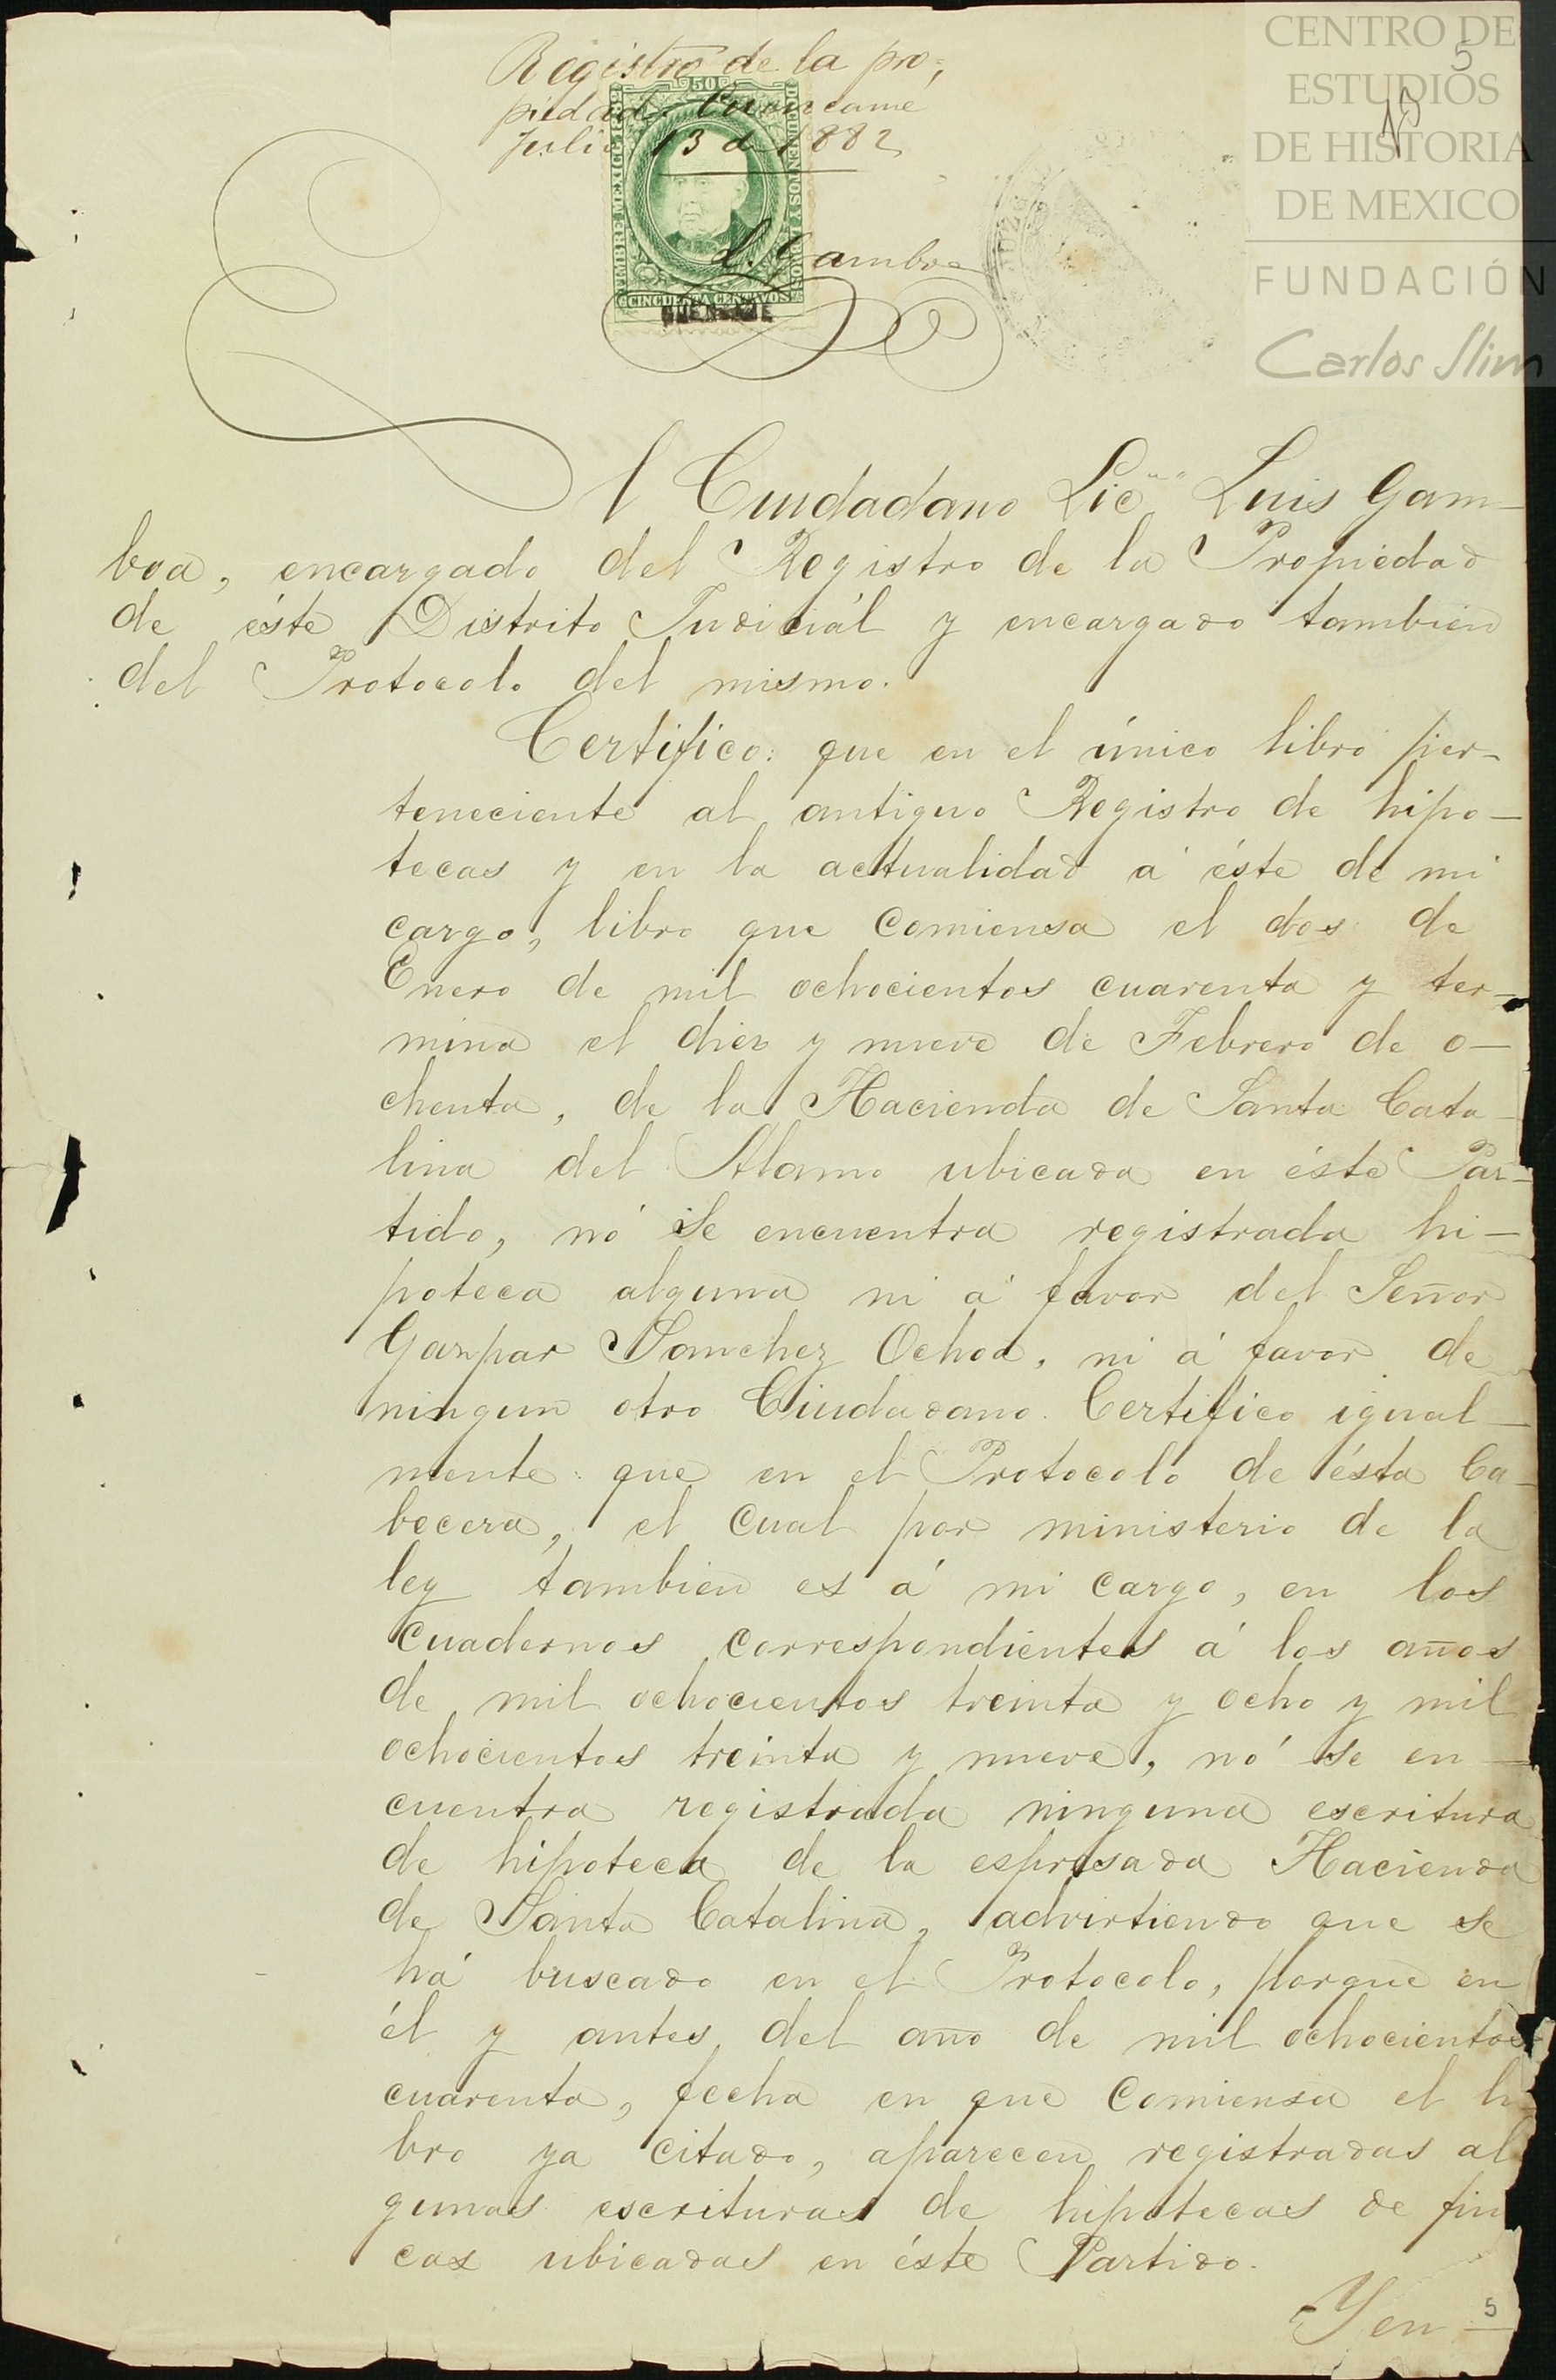 CENTRO DE
ESTUDIOS
DE HISTORIA
DE MEXICO
FUNDACIÓN
Carlos Slim
5
Registro de la pro-
piedad. Cuencamé
Julio 13 de 1882
50
TIMBRE MEXICO 1882
CINCUENTA CENTAVOS
L. Gamboa
El Ciudadano Lic. Luis Gam-
boa, encargado del Registro de la Propiedad
de éste Distrito Judiciál y encargado tambien
del Protocolo del mismo.
Certifico: que en el único libro per-
teneciente al antiguo Registro de hipo-
tecas y en la actualidad á éste de mi
cargo, libro que comiensa el dos de
Enero de mil ochocientos cuarenta y ter-
mina el diez y nueve de Febrero de o-
chenta, de la Hacienda de Santa Cata-
lina del Alamo ubicada en éste Par-
tido, nó se encuentra registrada hi-
poteca alguna ni á favor del Señor
Gaspar Sanchez Ochoa, ni á favor de
ningun otro Ciudadano. Certifico igual-
mente: que en el Protocolo de ésta Ca-
becera, el cual por ministerio de la
ley tambien es á mi cargo, en los
cuadernos correspondientes á los años
de mil ochocientos treinta y ocho y mil
ochocientos treinta y nueve, nó se en-
cuentra registrada ninguna escritura
de hipoteca de la espresada Hacienda
de Santa Catalina, advirtiendo que se
há buscado en el Protocolo, porque en
él y antes del año de mil ochocientos
cuarenta, fecha en que comiensa el li-
bro ya citado, aparecen registradas al
gunas escrituras de hipotecas de fin
cas ubicadas en éste Partido.
Y en
5